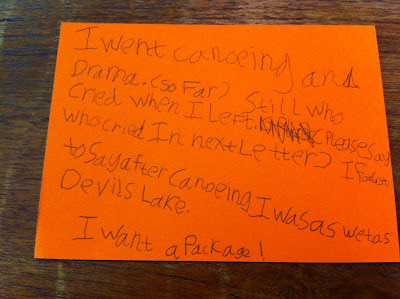 I went canoeing and
Drama. (so Far) Still who
cried when I left. (Please say
who cried In next Letter) I Forgot
to Say after Canoeing I was as wet as
Devils Lake.
I want a Package!